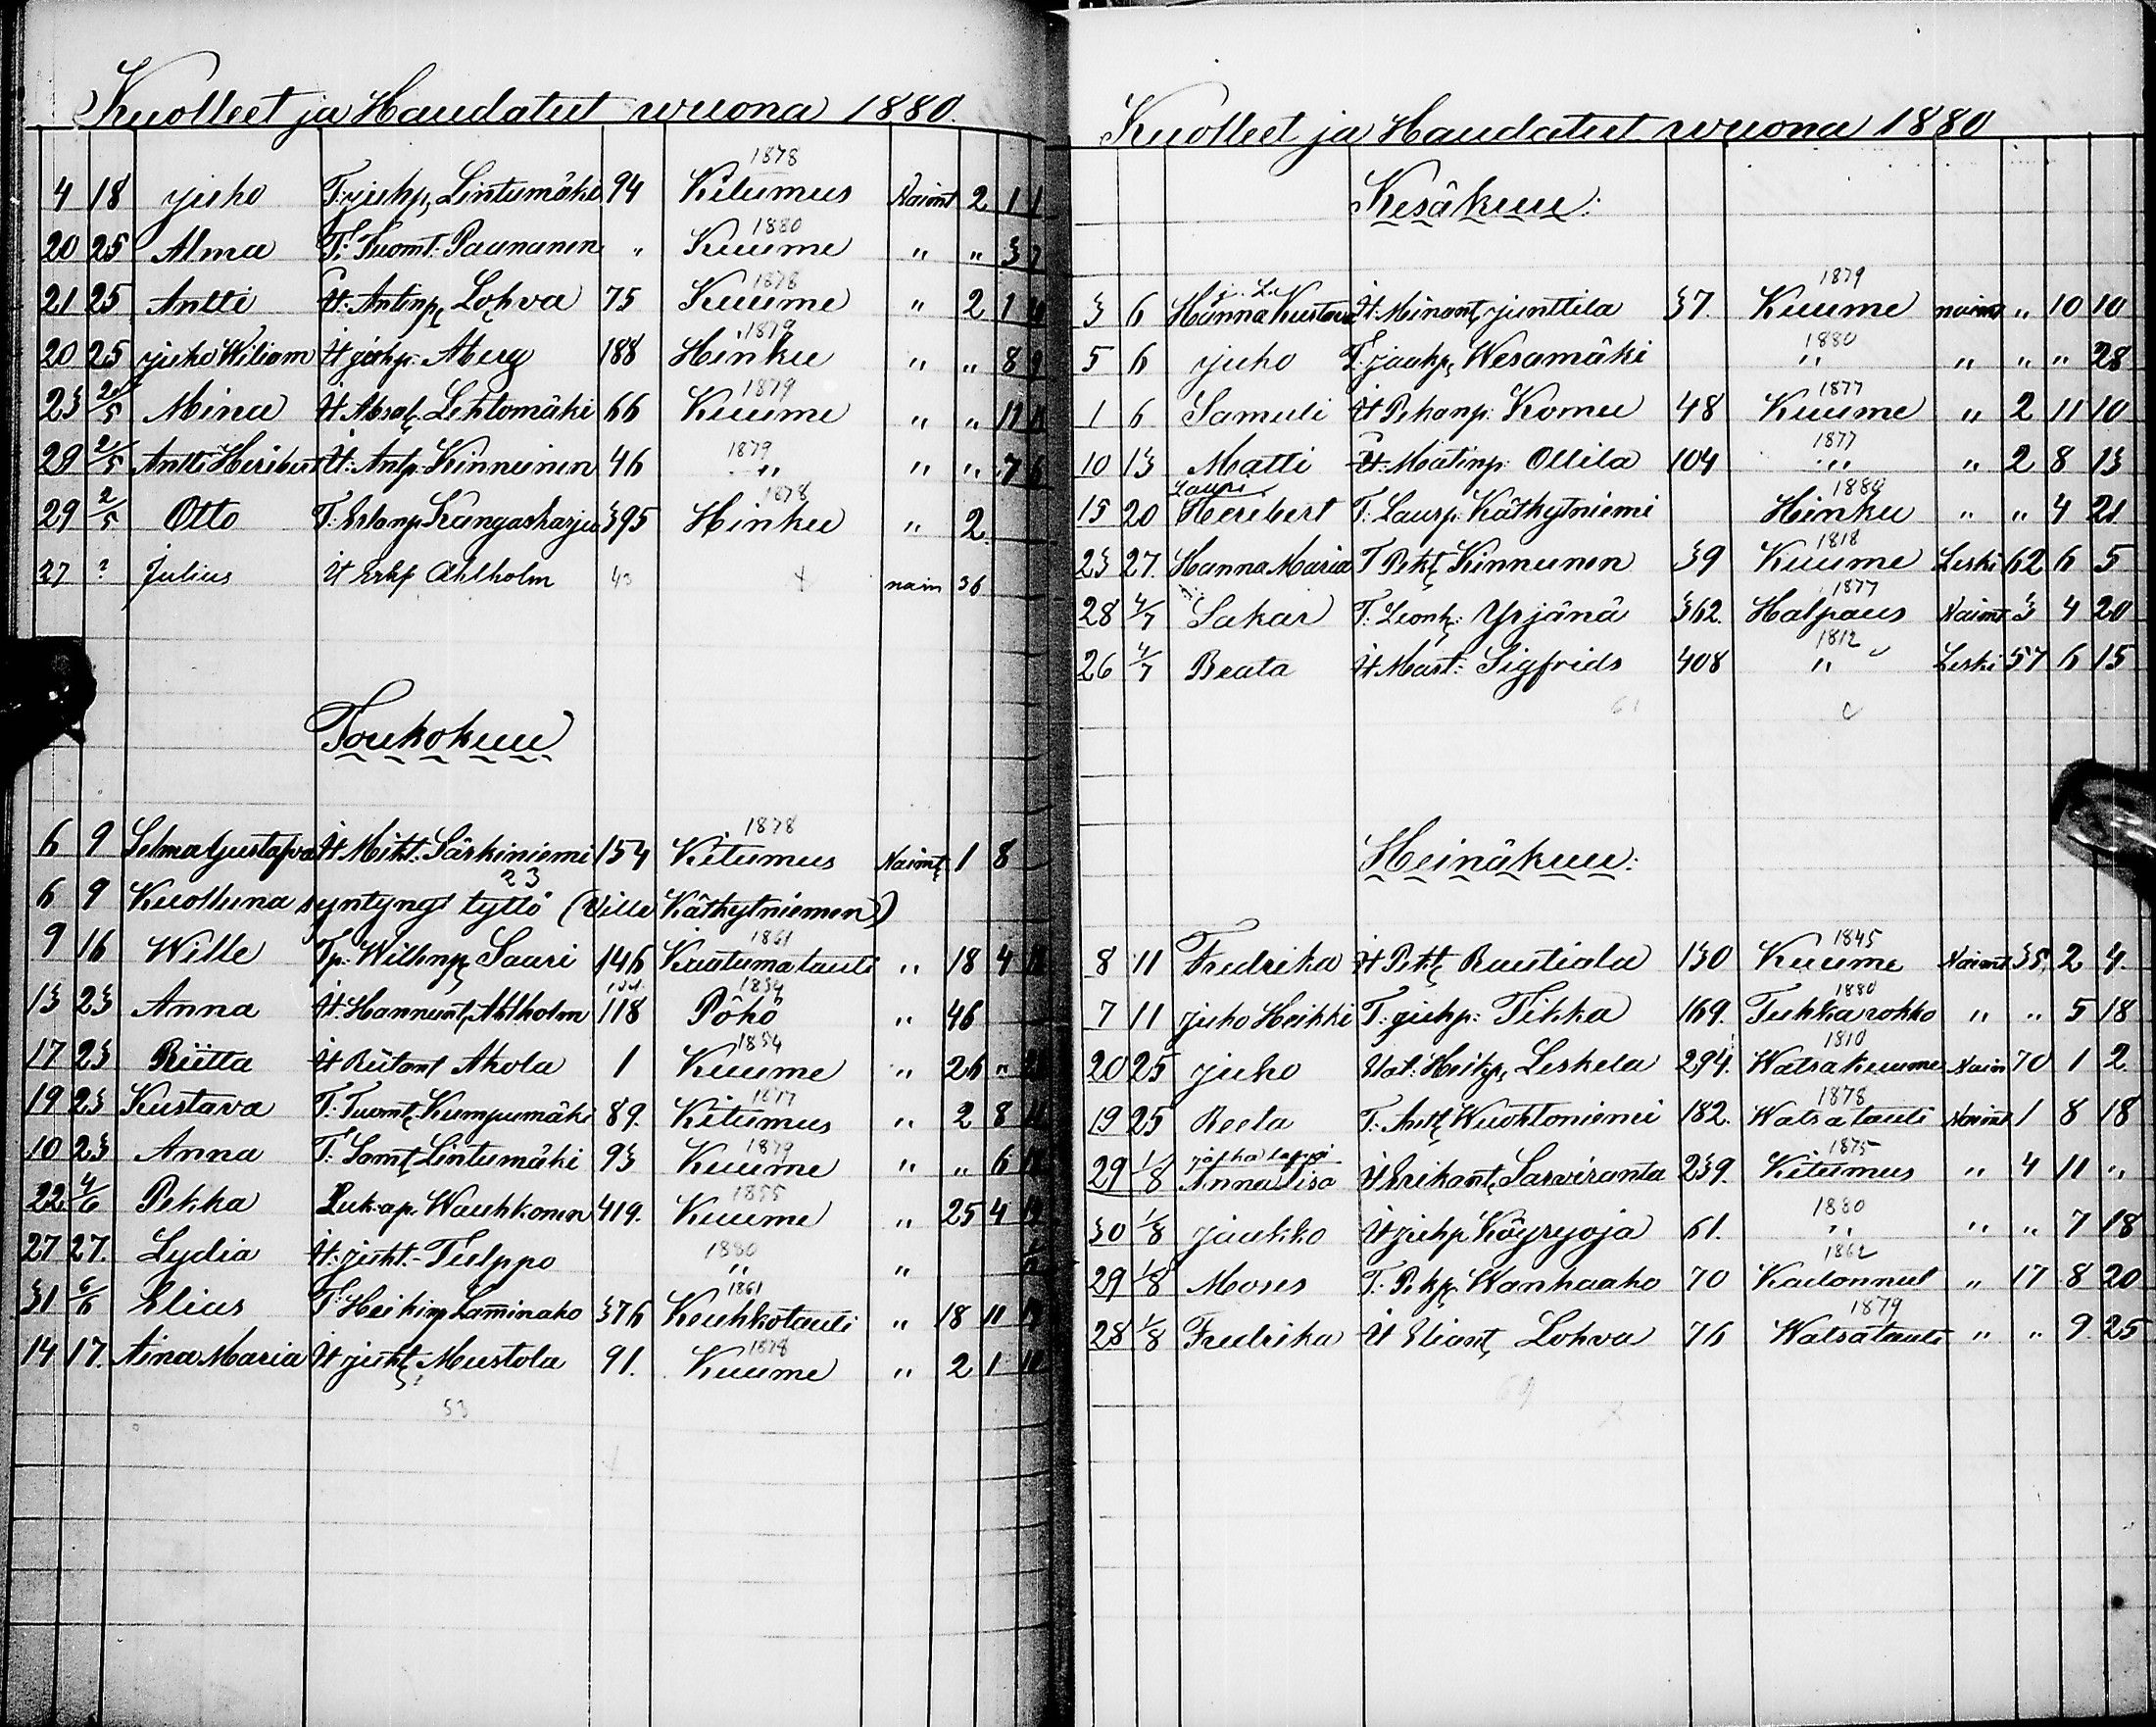 Kuolleet ja Haudatut wuona 1880.
1878
4 18 Juho T: Juhp, Lintumäki 94 Kitumus Naimt 2 1 1
1880
20 25 Alma T: Tuomt. Paananen " Kuume " " 3 2
1878
21 25 Antti It. Antinp, Lohva 75 Kuume " 2 1
1879
20 25 Juho Wiliam It Johp: Åberg 188 Hinku " " 8 9
1879
23 2/5 Mina It Absal, Lehtomäki 66 Kuume " " 11
1879
29 2/5 Antti Heribert It: Antp. Kinnunen 46 " " " 7 6
1878
29 2/5 Otto T: Erlanp Kångasharju 395 Hinku " 2
27 ? Julius It Erkp Ahlholm 43 nain 36
Toukokuu
1878
6 9 Selma Gustafva It Mikt: Särkiniemi 154 Kitumus Naimt, 1 8
23
6 9 Kuolluna syntyny tyttö (Ville Käthytniemen)
1861
9 16 Wille Tp: Wilhnp, Saari 146 Kaatumatauti " 18 4
1834
13 23 Anna It. Hannunt, Ahlholm 118 Pöhö " 46
1854
17 23 Riitta It Riitant Ahola 1 Kuume " 26 "
1877
19 23 Kustava T: Tuomt, Kumpumäki 89. Kitumus " 2 8
1879
10 23 Anna T: Samt, Lintumäki 93 Kuume " " 6
1855
22. 4/6 Pekka Luk. ap. Wauhkonen 419. Kuume " 25 4
1880
27 27. Lydia It: Juht- Tulppo " "
1861
31 6/6 Elias T: Heikinp Laminaho 376 Keuhkotauti " 18 11
1878
14 17. Aina Maria It Juht, Mustola 91. Kuume " 2 1 10
53
Kuolleet ja Haudatut wuona 1880
Kesäkuu:
1879
3 6 Hanna Kustava It: Minant, Junttila 37. Kuume naimt " 10 10
1880
5 6 Juho T: Jaakp, Wesamäki " " " " 28
1877
1 6 Samuli It Pekanp: Komu 48 Kuume " 2 11 10
1877
10 13 Matti It: Matinp: Ollila 104 " " 2 8 13
Lauri 1880
15 20 Heribert T: Laurp: Käthytniemi Hinku " " 4 21.
1818
23 27. Hanna Maria T Pekt, Kinnunen 39 Kuume Leski 62 6 5
1877
28 4/7 Sakar T: Leonp: Yrjänä 362. Halpaus Naimt 3 4 20
1812
26 4/7 Beata It Mart: Sigfrids 408 " Leski 57 6 15
61
Heinäkuu:
1845
8 11 Fredrika It Pekt, Rautiola 130 Kuume Naimt 35 2 4.
1880
7 11 Juho Heikki T: Juhp: Tikka 169. Tuhkarokko " " 5 18
1810
20 25 Juho Heikp, Leskelä 294. Watsakuume Nain 70 1 2
1878
19 25 Reeta T: Antt, Wuohtoniemi 182. Watsatauti Naimt 1 8 18
1875
29 1/8 Anna Lisa It Erikant, Sarviranta 239. Kitumus " 4 11 "
1880
30 1/8 Jaakko It Juhp Köyryoja 61. " " " 7 18
1862
29 1/8 Moses T: Pekp, Wanhaaho 70 Kadonnut " 17 8 20
1879
28 1/8 Fredrika It Eliant, Lohva 76 Watsatauti " " 9. 25
69